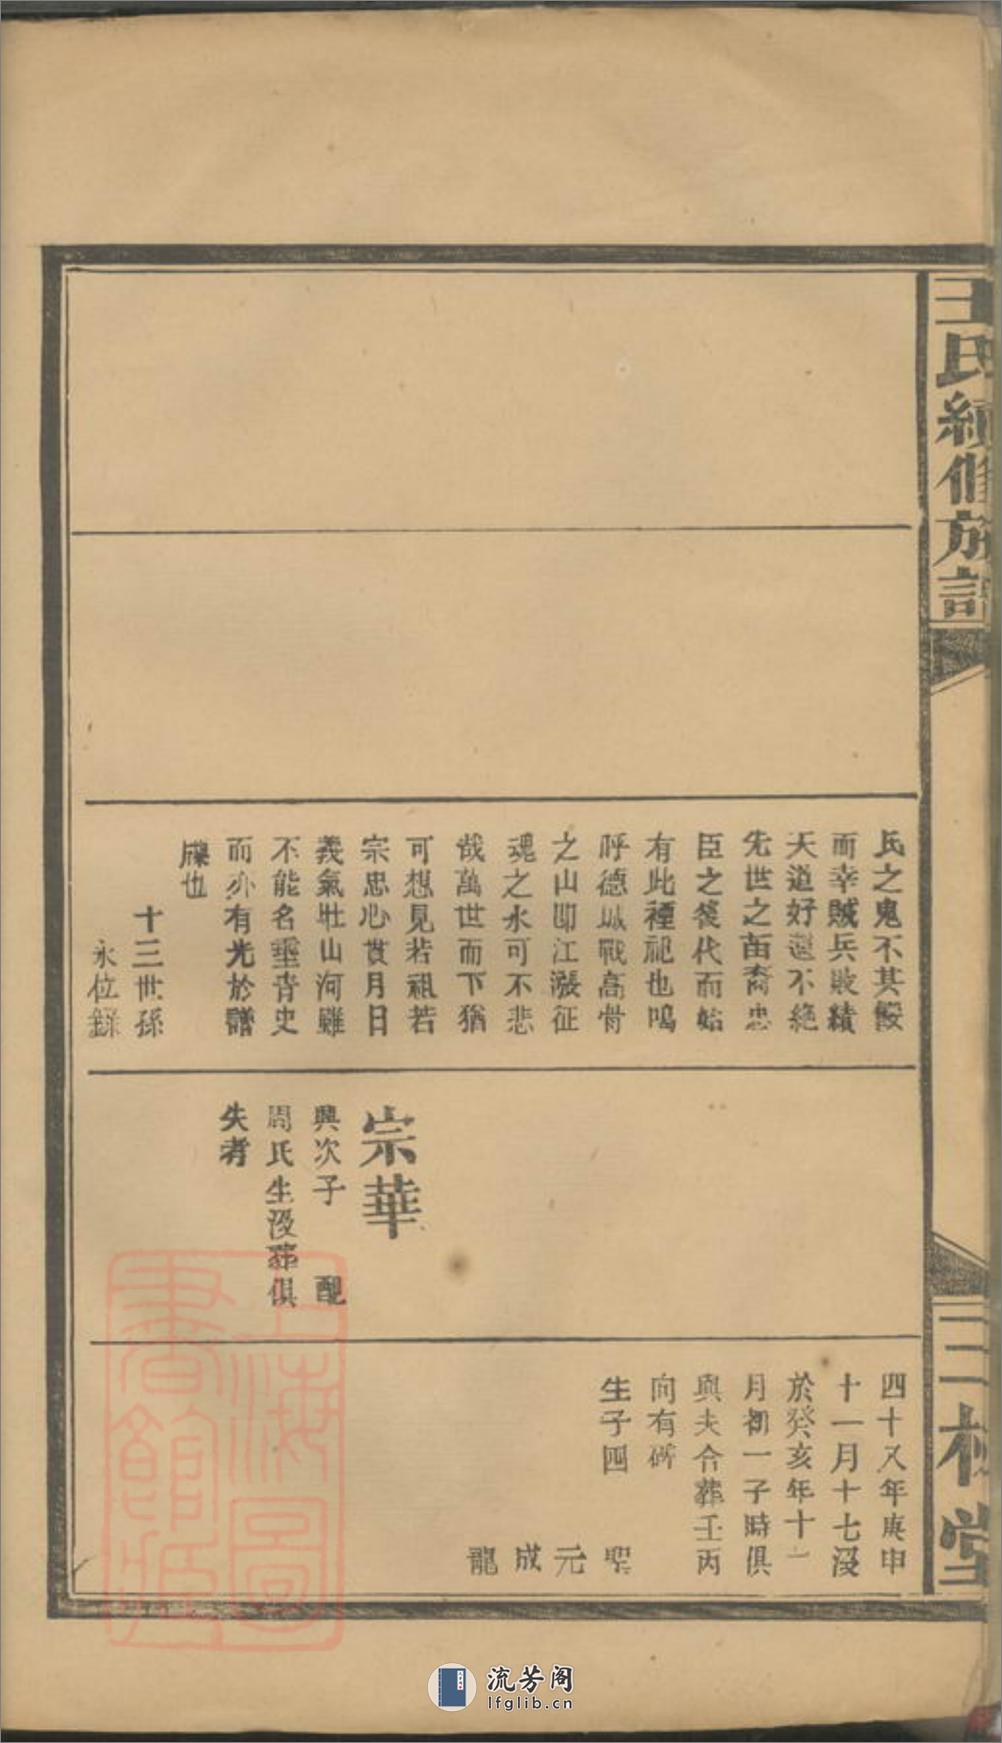 王氏續修族譜
三槐堂
氏之鬼不其餒
而幸賊兵敗績
天道好還不絕
先世之苗裔忠
臣之後代而始
有此種祀也嗚
呼德城戰高骨
之山即江漲征
魂之水可不悲
哉萬世而下猶
可想見若祖若
宗忠心貫月日
義氣壯山河雖
不能名垂青史
而亦有光於譜
牒也
十三世孫
永位錄
宗華
興次子 配
周氏生沒葬俱
失考
四十八年庚申
十一月十七沒
於癸亥年十一
月初一子時俱
與夫合葬壬丙
向有碑
生子四
聖 元 成 龍
上海圖書館藏
流芳阁
lfglib.cn